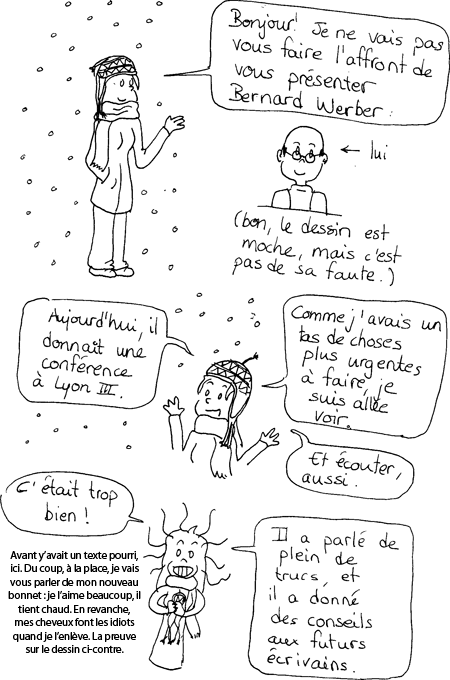 Bonjour! Je ne vais pas
vous faire l'affront de
vous présenter
Bernard Werber:
← lui
(bon, le dessin est
moche, mais c'est
pas de sa faute.)
Aujourd'hui, il
donnait une
conférence
à Lyon III.
Comme j'avais un
tas de choses
plus urgentes
à faire, je
suis allée
voir.
Et écouter,
aussi.
C'était trop
bien !
Avant y'avait un texte pourri,
ici. Du coup, à la place, je vais
vous parler de mon nouveau
bonnet : je l'aime beaucoup, il
tient chaud. En revanche,
mes cheveux font les idiots
quand je l'enlève. La preuve
sur le dessin ci-contre.
Il a parlé de
plein de
trucs, et
il a donné
des conseils
aux futurs
écrivains.